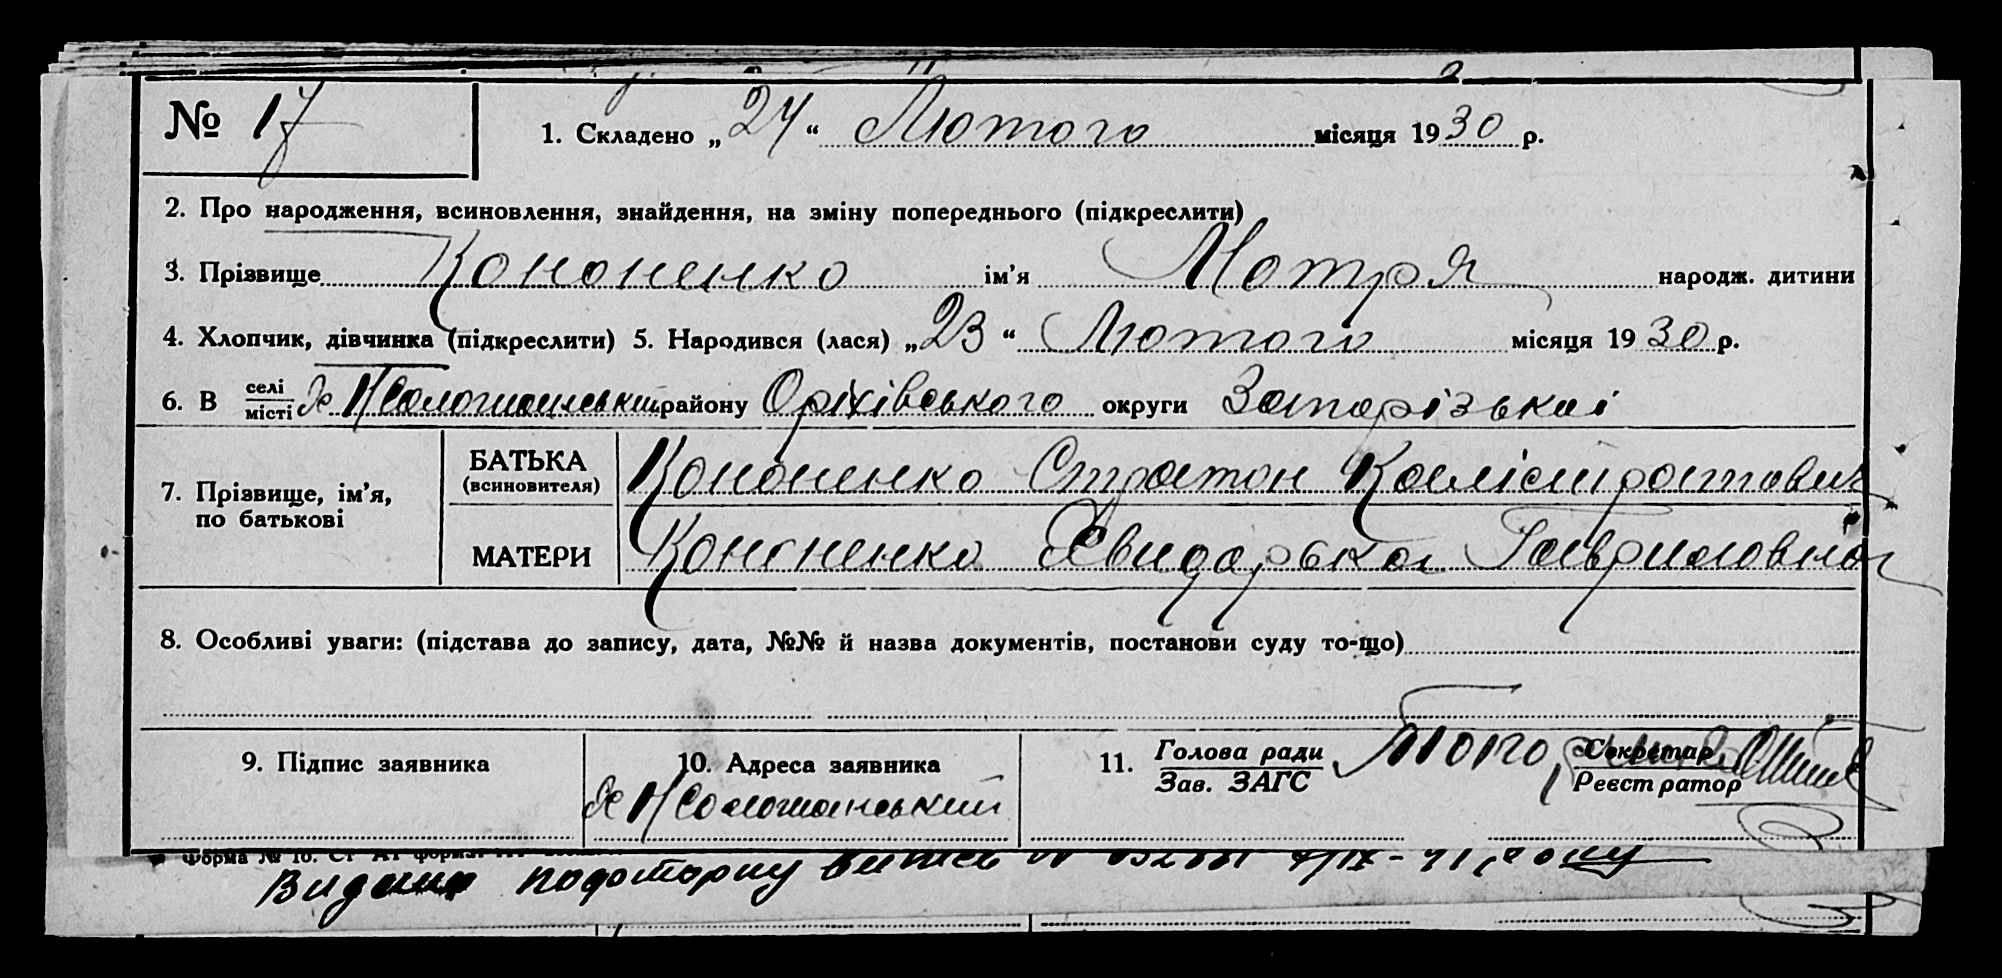 № 17
1. Складено „ 24 “ Лютого місяця 1930 р.
2. Про народження, всиновлення, знайдення, на зміну попереднього (підкреслити)
3. Прізвище Кононенко ім’я Мотря народж. дитини
4. Хлопчик, дівчинка (підкреслити) 5. Народився (лася) „ 23 “ Лютого місяця 1930 р.
6. В селі місті району Оріхівського округи Запорізької
7. Прізвище, ім’я, по батькові
БАТЬКА (всиновителя) Кононенко Стратон Калістратович
МАТЕРИ Кононенко Явидорька Гавриловна
8. Особливі уваги: (підстава до запису, дата, №№ й назва документів, постанови суду то-що)
9. Підпис заявника
10. Адреса заявника
11. Голова ради Зав. ЗАГС
Секретар Реєстратор
Форма № 10.